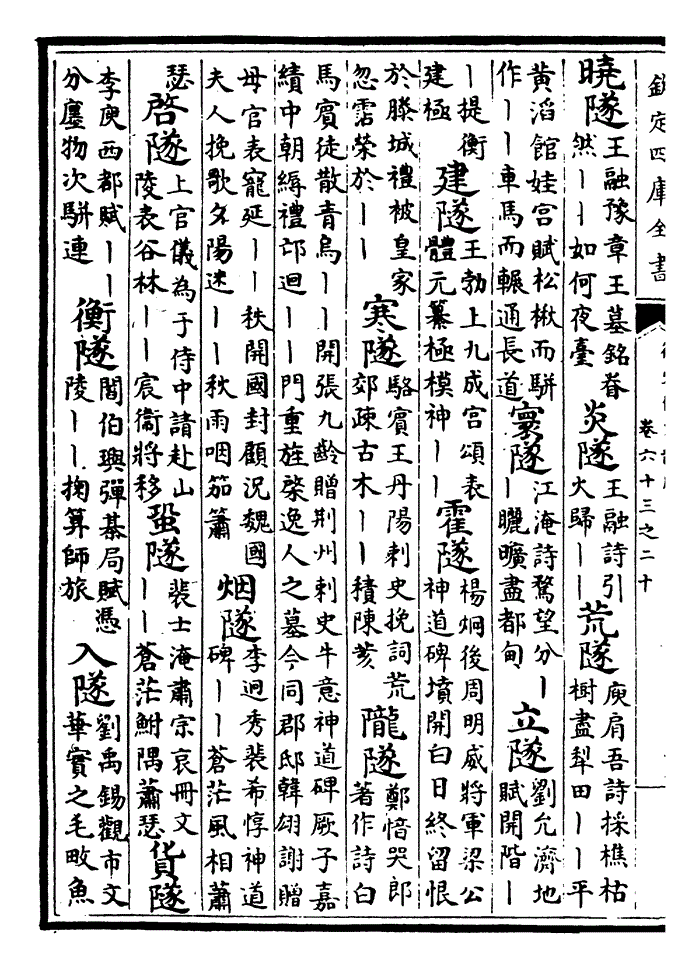 欽定四庫全書
卷六十三之二十
曉隧王融豫章王墓銘眷然丨丨如何夜臺炎隧王融詩引火歸丨丨荒隧庾肩吾詩採樵枯樹盡犁田丨丨平
黄滔館娃宫賦松楸而駢作丨丨車馬而輾通長道寰隧江淹詩騖望分丨丨曬曠盡都甸立隧劉允濟地賦開階丨
丨提衡建極建隧王勃上九成宫頌表體元纂極模神丨丨霍隧楊烱後周明威將軍梁公神道碑墳開白日終留恨
於滕城禮被皇家忽霑榮於丨丨寒隧駱賓王丹陽刺史挽詞荒郊疎古木丨丨積陳荄隴隧鄭愔哭郎著作詩白
馬賓徒散青烏丨丨開張九齡贈荆州刺史牛意神道碑厥子嘉
績中朝縟禮邙迴丨丨門重旌棨逸人之墓今同郡邸韓翃謝贈
母官表寵延丨丨秩開國封顧況魏國夫人挽歌夕陽迷丨丨秋雨咽笳簫烟隧李迥秀裴希惇神道碑丨丨蒼茫風相蕭
瑟啓隧上官儀為于侍中請赴山陵表谷林丨丨宸衞將移蛩隧裴士淹肅宗哀冊文丨丨蒼茫鮒隅蕭瑟貨隧
李庾西都賦丨丨分廛物次駢連衡隧閻伯璵彈棊局賦憑陵丨丨掬算師旅入隧劉禹錫觀市文華實之毛畋魚